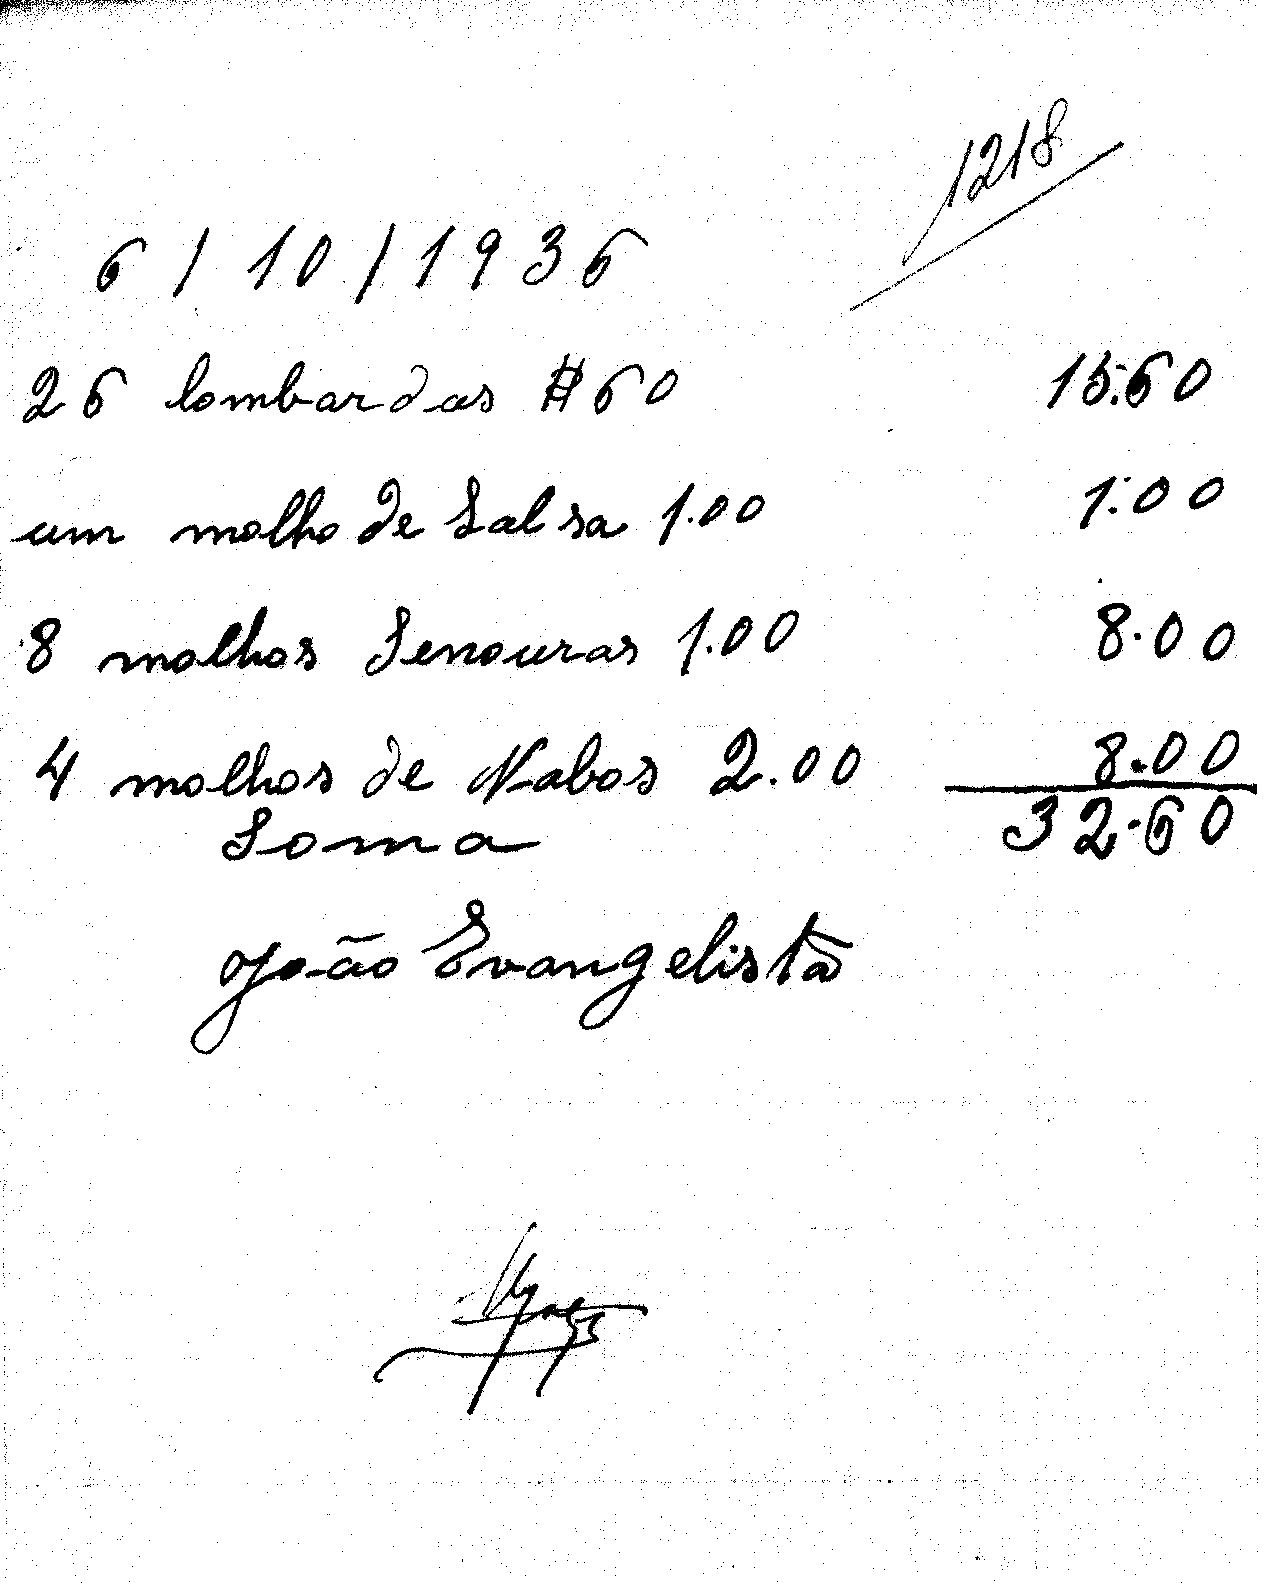 1218
6/10/1936
26 lombardas $60 15.60
um molho de Salsa 1.00 1.00
8 molhos Senouras 1.00 8.00
4 molhos de Nabos 2.00 8.00
Soma 32.60
João Evangelista